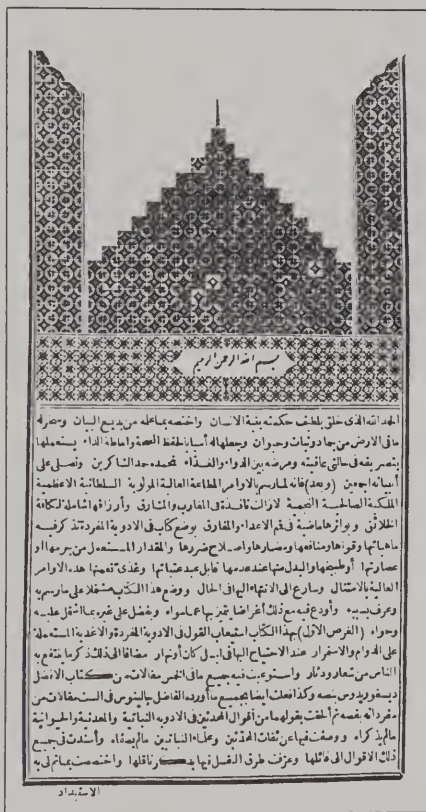 بسم الله الرحمن الرحيم
الحمد لله الذى خلق بلطيف حكمته بنية الانسان واختصه بما علمه من بديع البيان وسخر له
ما فى الارض من جماد ونبات وحيوان وجعلها له أسبابا لحفظ الصحة واماطة الداء يستعملها
بتصريفه فى حالتى عافيته ومرضه بين الدواء والغذاء نحمده حمد الشاكرين ونصلى على
أنبيائه اجمعين (وبعد) فانه لما رسم بالاوامر المطاعة العالية المولوية السلطانية الاعظمية
الملكية الصالحية النجمية لازالت نافذة فى المغارب والمشارق وأرزاقها شاملة لكافة
الخلائق وبواترها ماضية فى قمم الاعداء والمفارق بوضع كتاب فى الادوية المفردة تذكر فيه
ماهياتها وقواها ومنافعها ومضارها واصلاح ضررها والمقدار المستعمل من جرمها أو
عصارتها أو طبيخها والبدل منها عند عدمها قابل عبد عتباتها وغذى نعمتها هذه الاوامر
العالية بالامتثال وسارع الى الانتهاء اليها فى الحال ووضع هذا الكتاب مشتملا على مارسم به
وعرف بسببه وأودع فيه مع ذلك أغراضا يتميز بها عما سواه ويفضل على غيره بما اشتمل عليه
وحواه (الغرض الاول) بهذا الكتاب استيعاب القول فى الادوية المفردة والاغذية المستعملة
على الدوام والاستمرار عند الاحتياج اليها فى ليل كان أو نهار مضافا الى ذلك ذكر ما ينتفع به
الناس من شعار ودثار واستوعبت فيه جميع ما فى الخمس مقالات من كتاب الافضل
ديسقوريدوس بنصه وكذا فعلت أيضا بجميع ما أورده الفاضل جالينوس فى الست مقالات من
مفرداته بنصه ثم ألحقت بقولهما من أقوال المحدثين فى الادوية النباتية والمعدنية والحيوانية
مالم يذكراه ووصفت فيها عن ثقات المحدثين وعلماء النباتيين مالم يصفاه وأسندت فى جميع
ذلك الاقوال الى قائلها وعرفت طرق النقل فيها بذكر ناقلها واختصصت بما تم لى به
الاستبداد